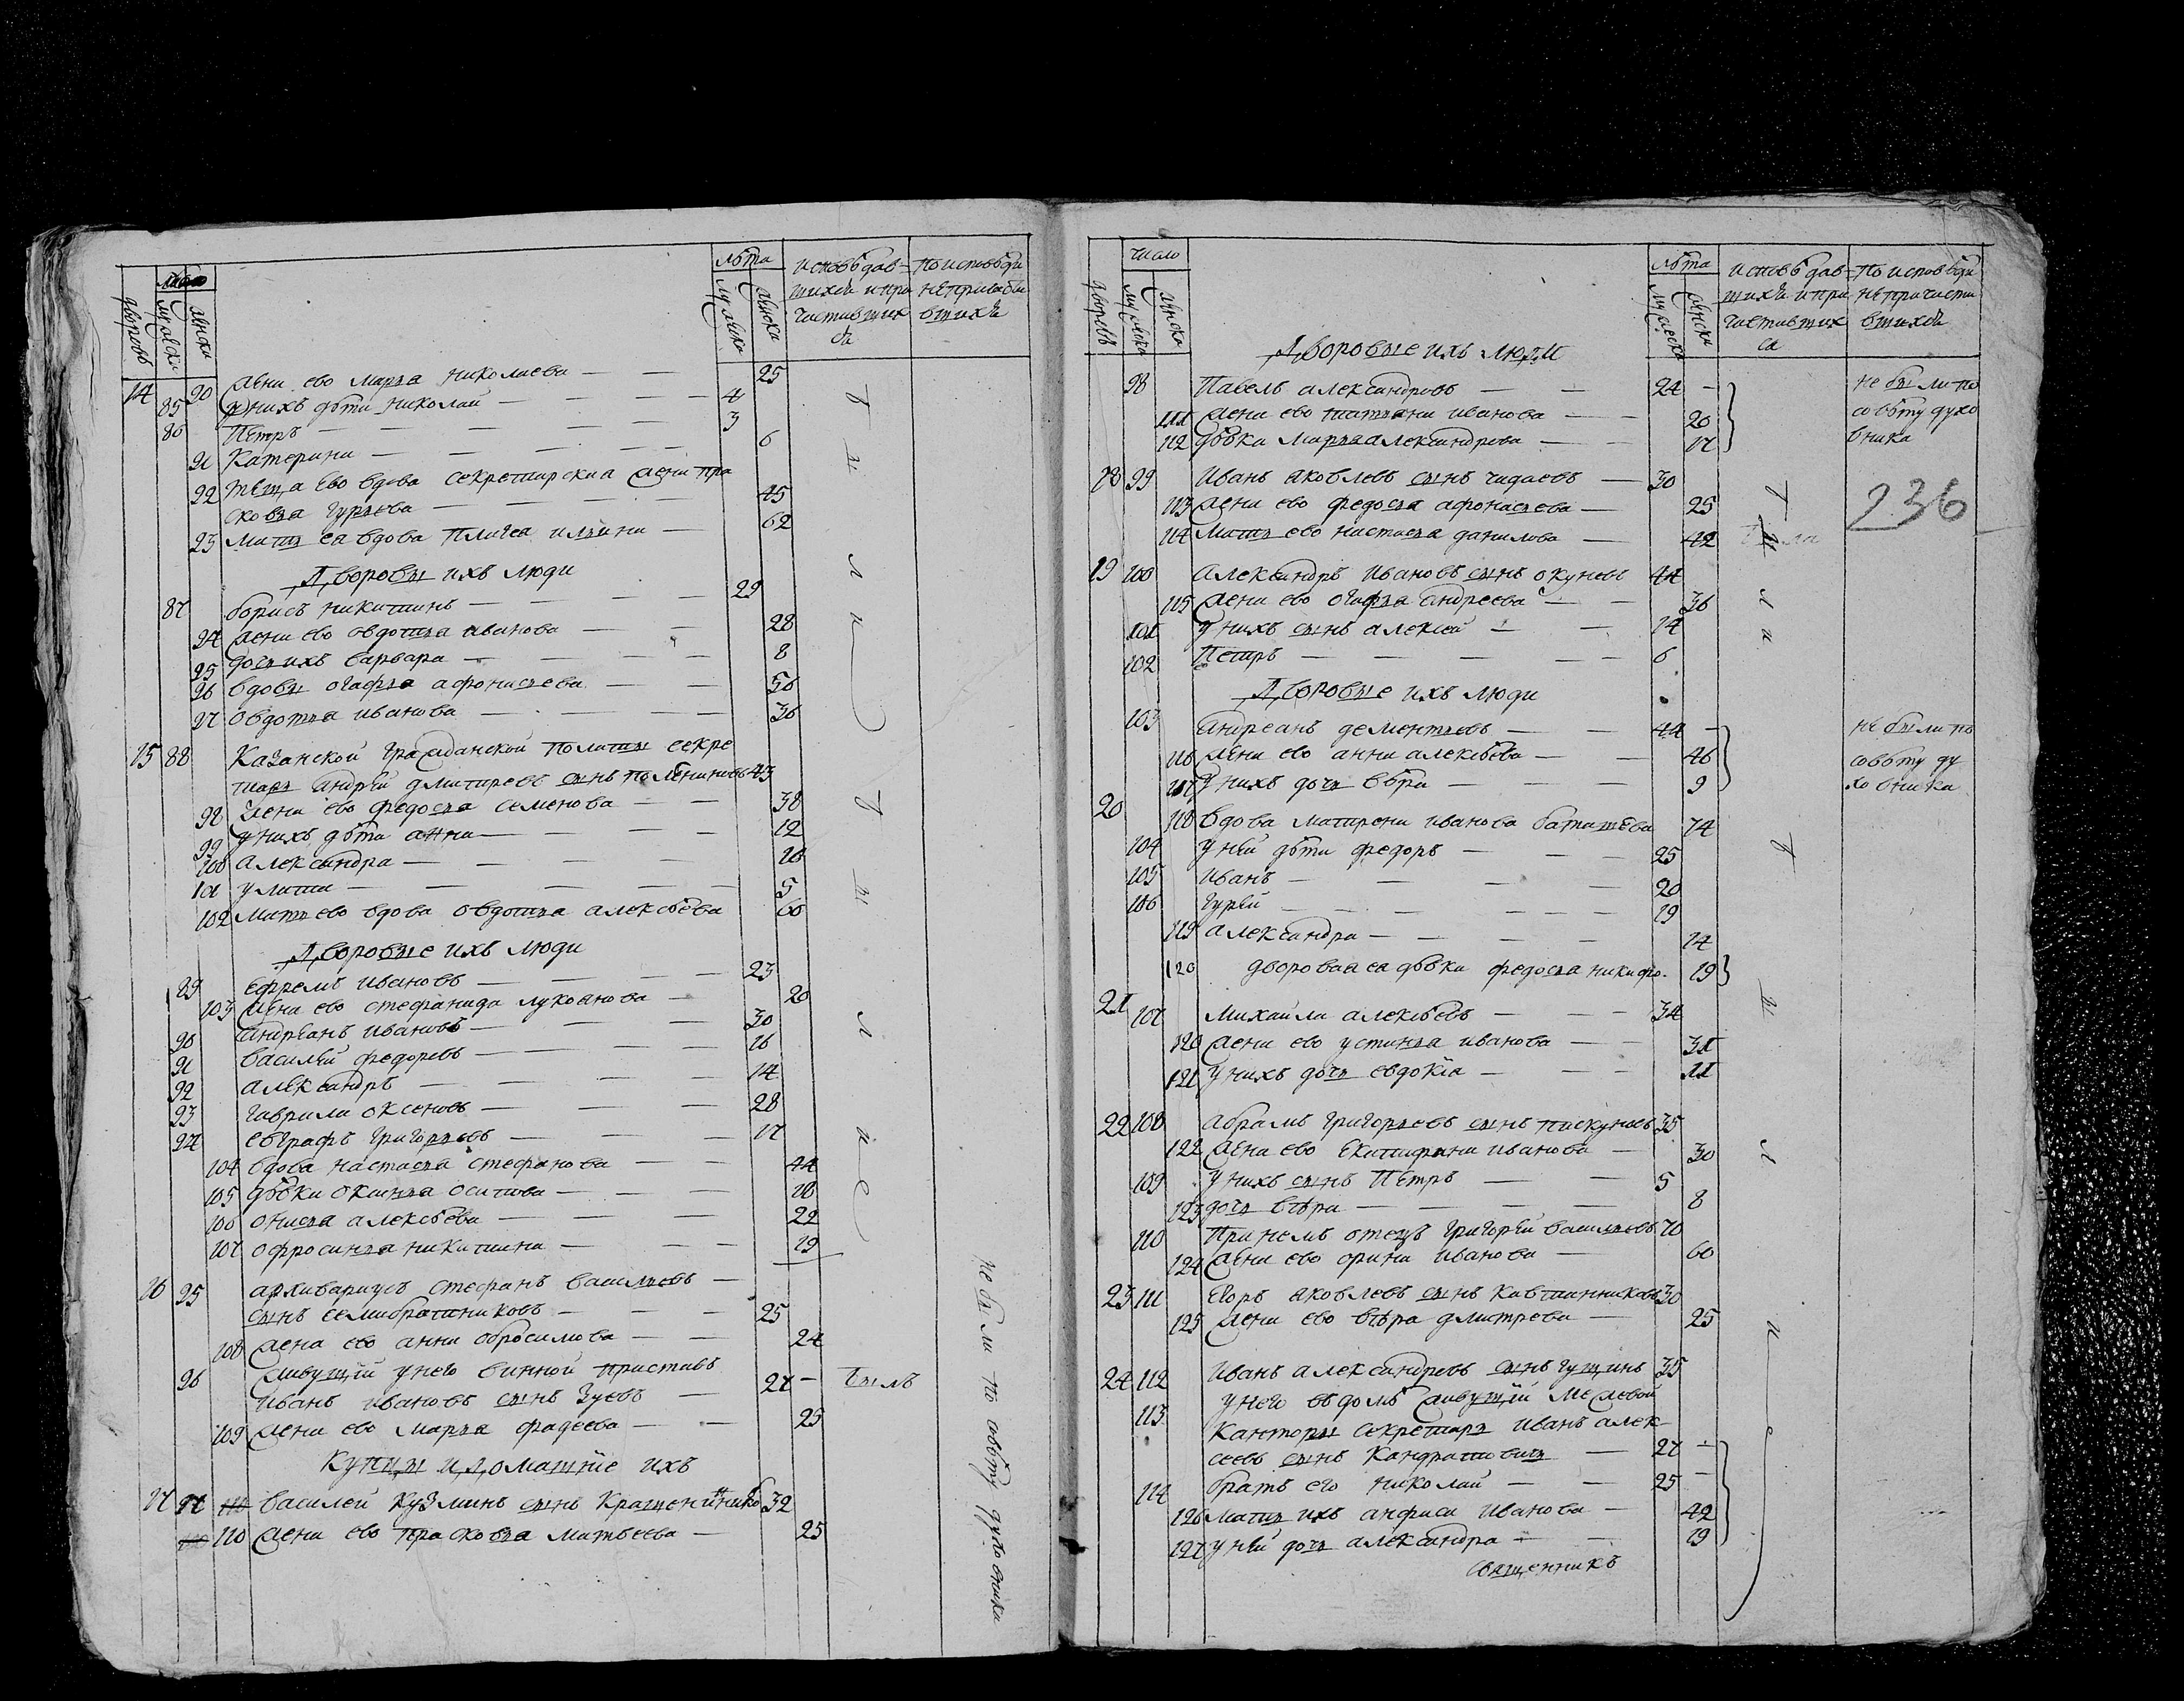 число
лѣта
исповѣдав- по исповѣди
шихся и при непричасти
чстившихся вшихся
дворовъ мужска женска мужска женска
14 90 жена ево марья николаева 25
85 у нихъ дѣти николай 4
86 Петръ 3
91 Катерина 6
92 теща ево вдова секретарская жена пра
сковья гурьева 45
93 мать ея вдова ильина 62
Дворовыя ихъ люди
87 борисъ никитинъ 29
94 жена ево овдотья иванова 28
95 дочь ихъ варвара 8
96 вдовы огафья афонасьева 56
97 овдотья иванова 36
15 88 Казанской гражданской полиции секре
тарь андрей дмитревъ сынъ 43
98 жена ево федосья семенова 38
99 у нихъ дѣти анна 12
100 александра 10
101 улита 5
102 мать ево вдова овдотья алексѣева 60
Дворовые ихъ люди
89 ефремъ ивановъ 23
103 жена ево стефанида лукоянова 20
90 андреянъ ивановъ 30
91 василей федоровъ 16
92 александръ 14
93 гаврила оксеновъ 28
94 евграфъ григорьевъ 17
104 вдова настасья стефанова 44
105 дѣвки оксинья осипова 18
106 онисья алексѣева 22
107 офросинья никитина 19
16 95 архивариусъ стефанъ васильевъ
сынъ семибратниковъ 25
108 жена ево анна обросимова 24
96 живущій у него винной приставъ
иванъ ивановъ сынъ зуевъ 27 былъ
109 жена ево марья фадеева 25
Купцы и домашніе ихъ
17 97 василей кузминъ сынъ крашенинниковъ 32
110 жена ево прасковья матвеева 25
были
не были по совѣту духовника
число
лѣта
исповѣдав- по исповѣди
шихся и при непричасти
чстившихся вшихся
дворовъ мужска женска мужска женска
Дворовые ихъ люди
98 Павелъ александровъ 24 не были по
111 жена ево татьяна иванова 20 совѣту духо
112 дѣвка марья александрова 17 вника
18 99 иванъ яковлевъ сынъ чидаевъ 30
236
113 жена ево федосья афонасьева 25
114 мать ево настасья данилова 42
19 100 александръ ивановъ сынъ окуневъ 44
115 жена ево огафья андреева 36
101 у нихъ сынъ алексей 14
102 Петръ 6
Дворовые ихъ люди
103 андреянъ дементьевъ 44 не были по
116 жена ево анна алексѣева 46 совѣту ду
117 у нихъ дочь вѣра 9 ховника
20 118 вдова матрена иванова баташева 74
104 у ней дѣти федоръ 25
105 иванъ 20
106 гурей 19
119 александра 14
120 дворовая ея дѣвка федосья никифо. 19
21 107 михаила алексѣевъ 34
120 жена ево устинья иванова 31
121 у нихъ дочь евдокія 11
22 108 абрамъ григорьевъ сынъ пискуновъ 35
122 жена ево екатерина иванова 30
109 у нихъ сынъ Петръ 5
123 дочь вѣра 8
110 при немъ отецъ григорей васильевъ 70
124 жена ево орина иванова 60
23 111 егоръ яковлевъ сынъ кавтанниковъ 30
125 жена ево вѣра дмитрева 25
24 112 иванъ александровъ сынъ гущинъ 35
113 у него въ домѣ живущій межевой
канторы секретарь иванъ алек
сеевъ сынъ кандратовичь 27
114 братъ его николай 25
126 мать ихъ анфиса иванова 42
127 у ней дочь александра 19
были
священникъ